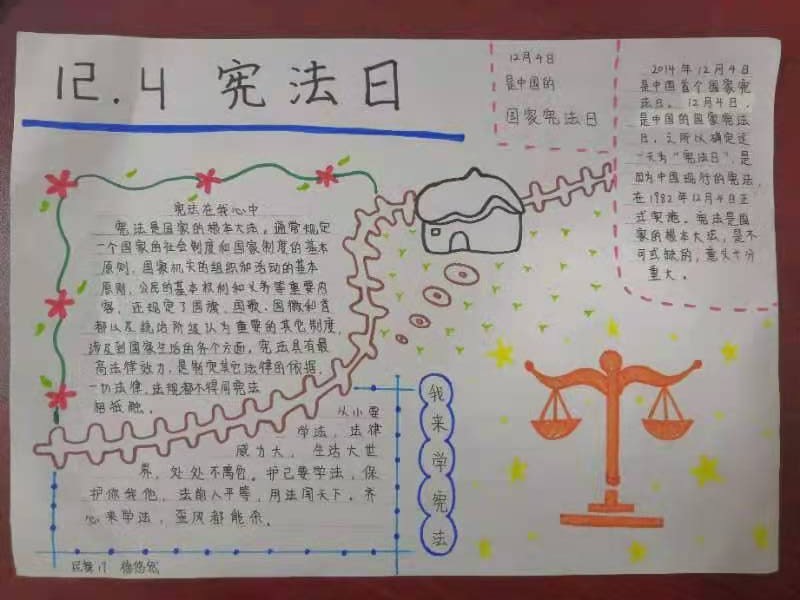 12.4 宪法日
12月4日
是中国的
国家宪法日
2014年12月4日
是中国首个国家宪
法日。12月4日,
是中国的国家宪法
日,之所以确定这
一天为“宪法日”,是
因为中国现行的宪法,
在1982年12月4日正
式实施。宪法是国
家的根本大法,是不
可或缺的,意义十分
重大。
宪法在我心中
宪法是国家的根本大法。通常规定
一个国家的社会制度和国家制度的基本
原则,国家机关的组织和活动的基本
原则,公民的基本权利和义务等重要内
容,还规定了国旗、国歌、国徽和首
都以及统治阶级认为重要的其它制度,
涉及到国家生活的各个方面。宪法具有最
高法律效力,是制定其它法律的依据,
一切法律、法规都不得同宪法
相抵触。
从小要
学法,法律
威力大,生活大世
界,处处不离它。护己要学法,保
护你我他,法前人平等,用法闯天下。齐
心来学法,歪风都能杀。
我来学宪法